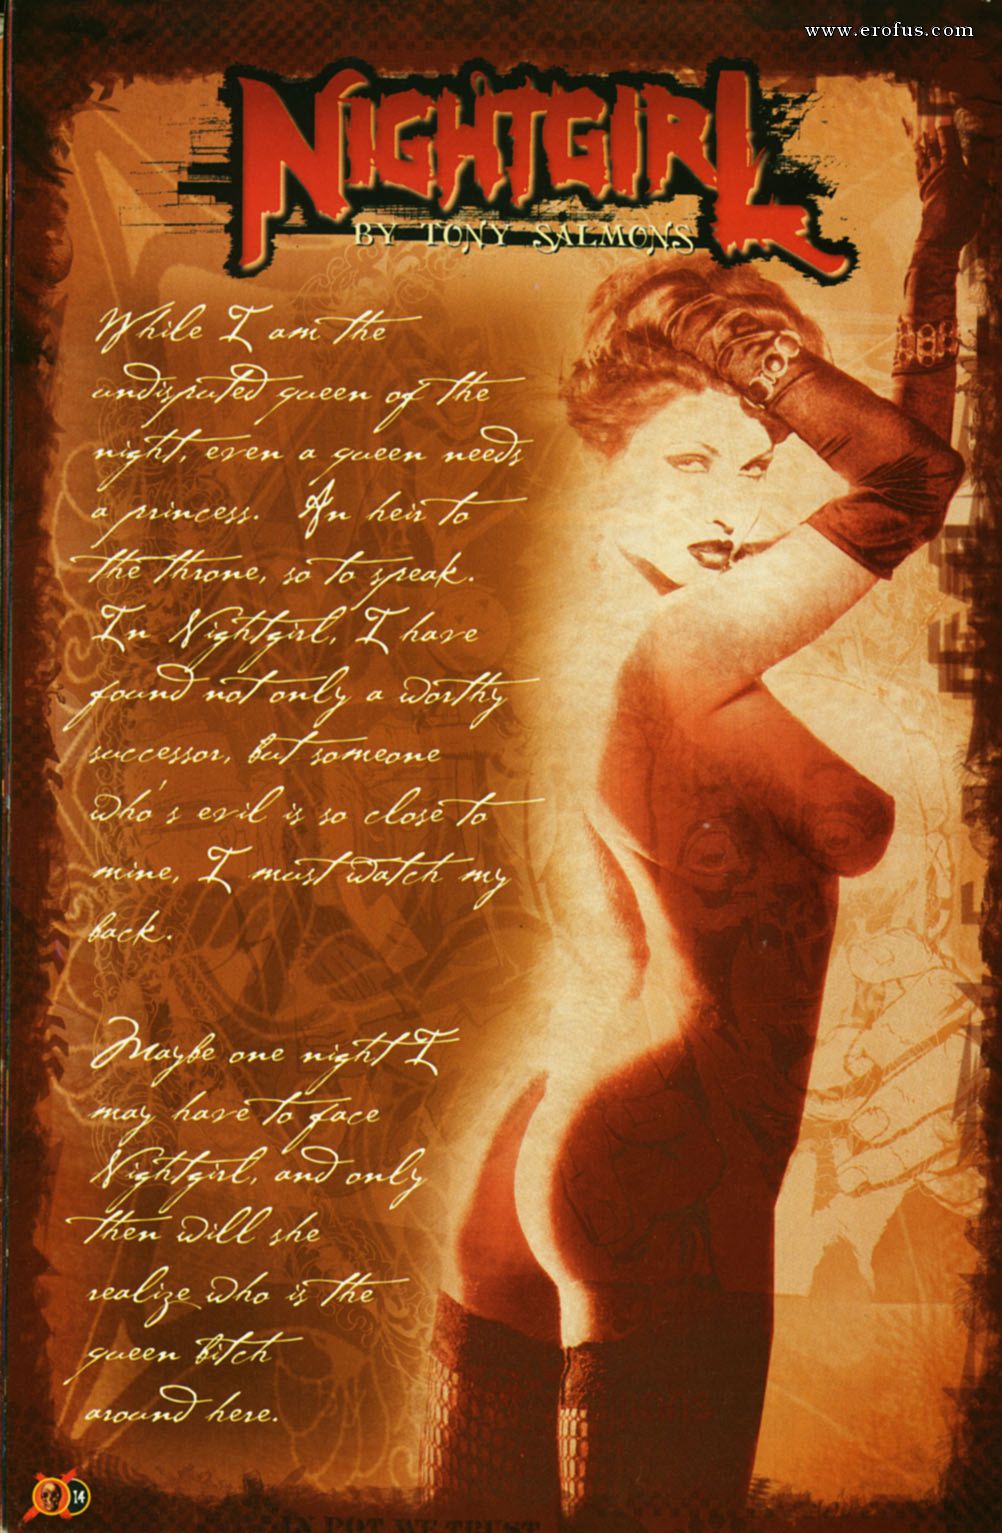 www.erofus.com
NIGHTGIRL
BY TONY SALMONS
While I am the
undisputed queen of the
night, even a queen needs
a princess. An heir to
the throne, so to speak.
In Nightgirl, I have
found not only a worthy
successor, but someone
who's evil is so close to
mine, I must watch my
back.
Maybe one night I
may have to face
Nightgirl, and only
then will she
realize who is the
queen bitch
around here.
14
IN ROT WE TRUST